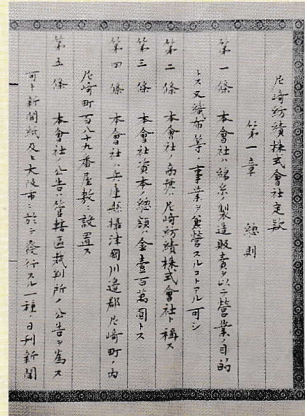 尼崎紡績株式會社定款
第一章 總則
第一條 本會社ハ綿糸ノ製造販賣ヲ以テ營業ノ目的
トス又綿布等ノ事業ヲ兼營スルコトアル可シ
第二條 本會社ノ商號ハ尼崎紡績株式會社ト稱ス
第三條 本會社資本ノ總額ハ金壹百萬圓トス
第四條 本會社ハ兵庫縣攝津國川邊郡尼崎町ノ内
尼崎町百八十九番屋敷ニ設置ス
第五條 本會社ノ公告ハ管轄區裁判所ノ公告ヲ爲ス
可キ新聞紙及ヒ大阪市ニ於テ發行スル一種ノ日刊新聞